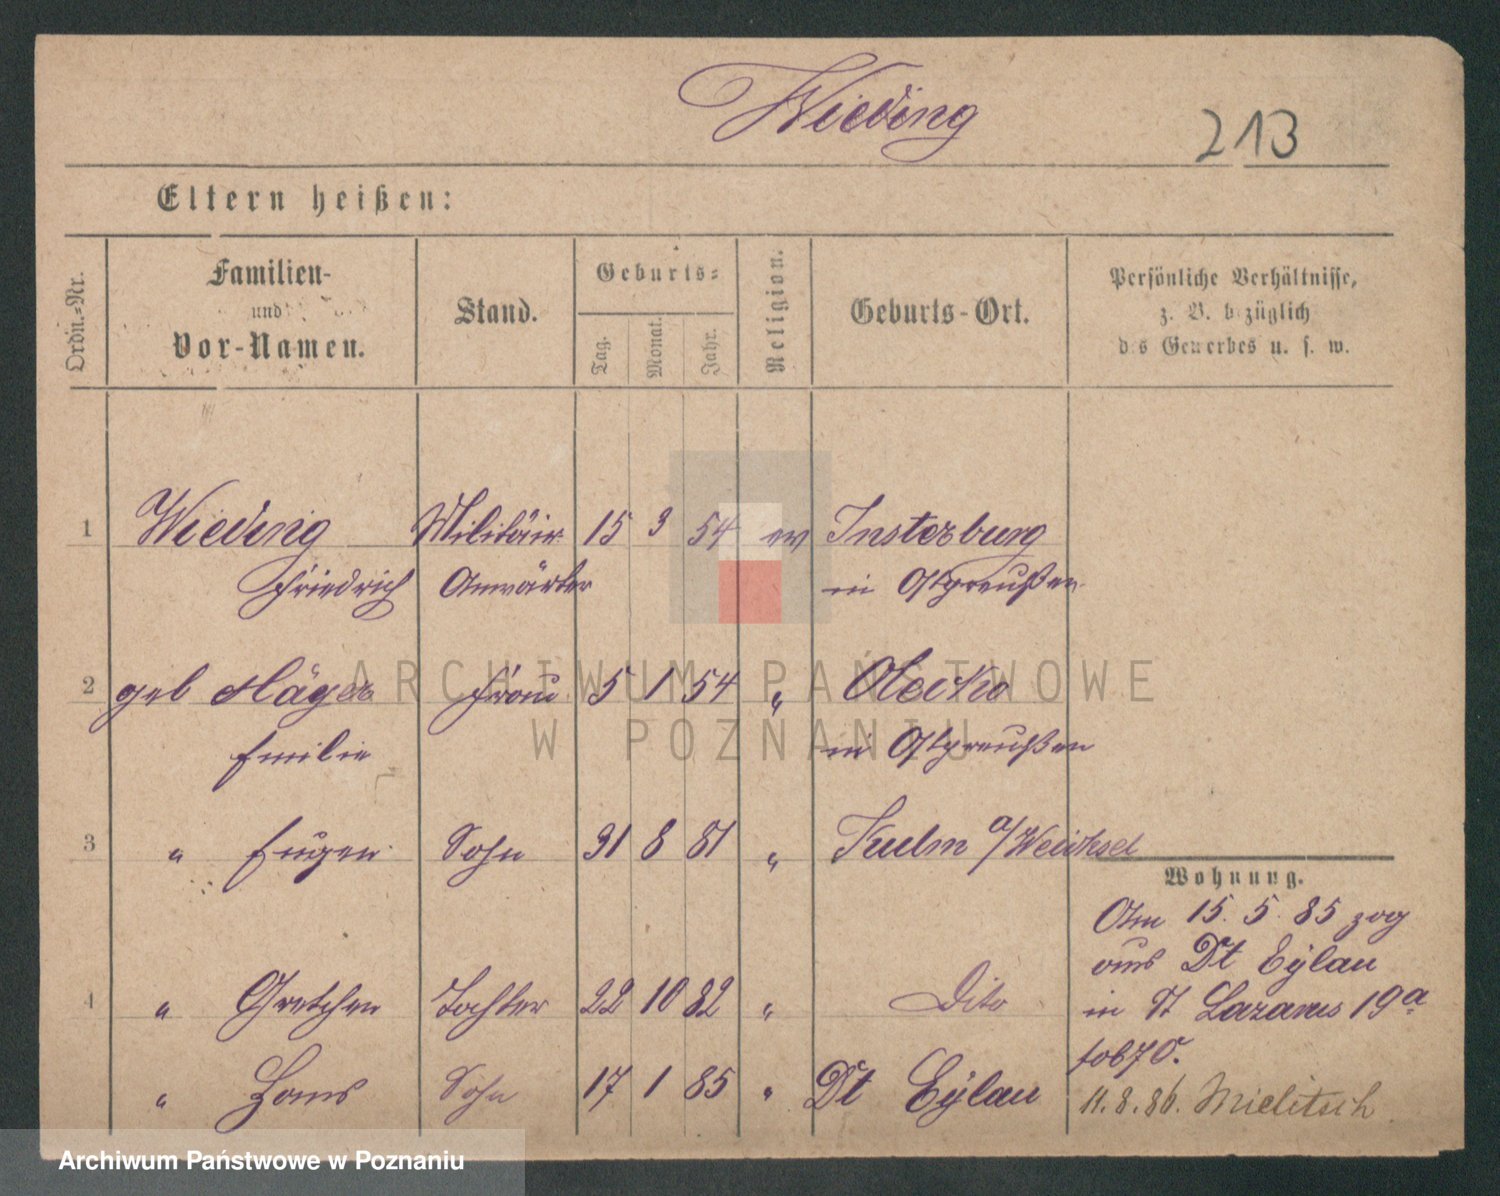 Wieding
213
Eltern heißen:
Ordn.=Nr.
Familien-
und
Vor-Namen.
Stand.
Geburts=
Tag.
Monat.
Jahr.
Religion.
Geburts-Ort.
Persönliche Verhältnisse,
z. B. bezüglich
des Gewerbes u. s. w.
1 Wieding Militäir 15 3 54 ev Insterburg
Friedrich Anwärter in Ostpreußen
2 geb Häger Frau 5 1 54 " Olecko
Emilie in Ostpreußen
3 " Eugen Sohn 31 8 81 " Kulm a/Weichsel
Wohnung.
Am 15. 5. 85 zog
aus Dt Eylau
in St Lazarus 19a
4 " Gretchen Tochter 22 10 82 " Dito
" Hans Sohn 17 1 85 " Dt Eylau
11.8.86. Mielitsch
ARCHIWUM PAŃSTWOWE
W POZNANIU
Archiwum Państwowe w Poznaniu